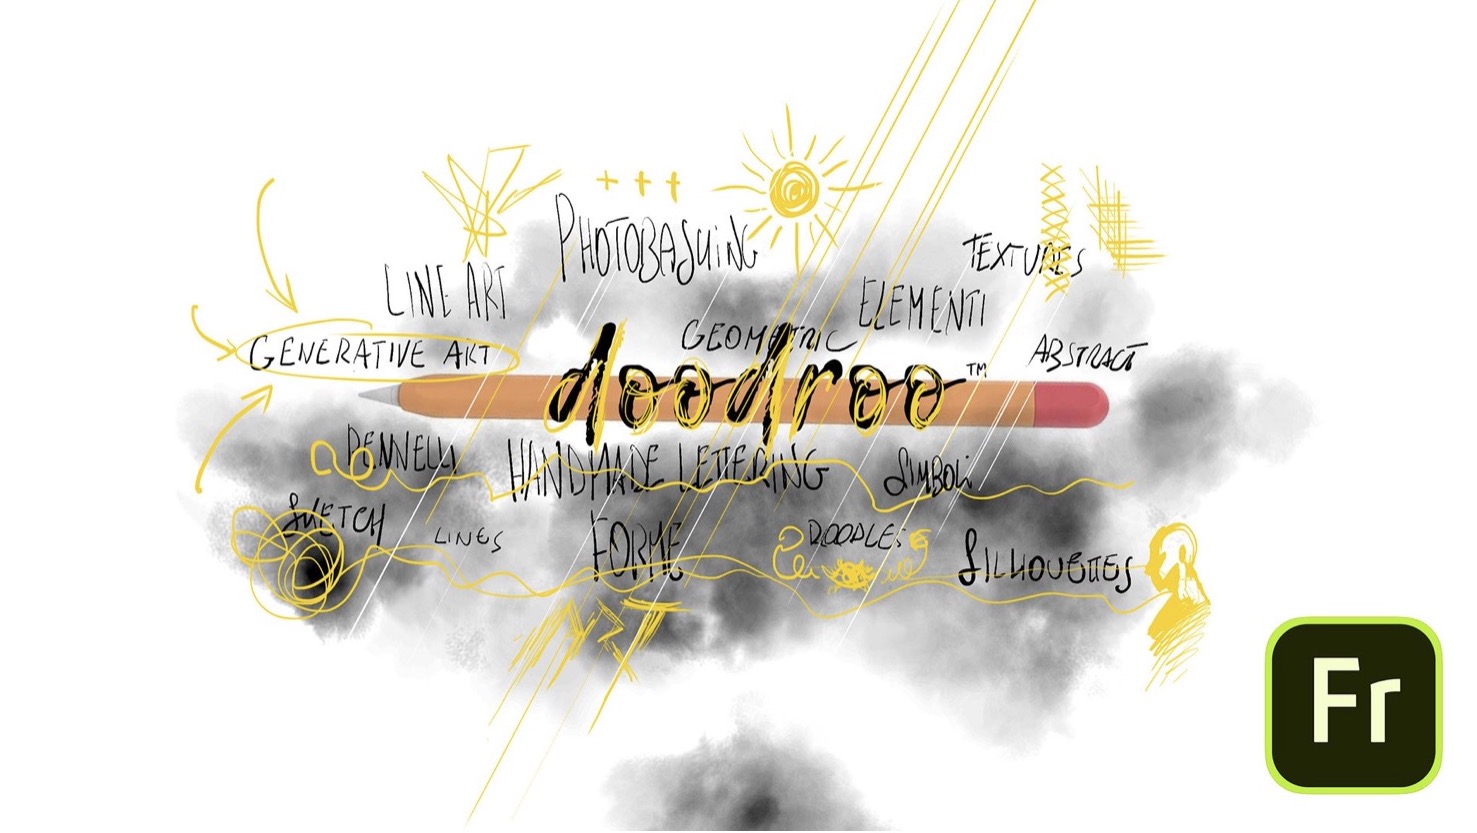 PHOTOBASHING
TEXTURES
LINE ART
ELEMENTI
GEOMETRIC
GENERATIVE ART
ABSTRACT
doodroo™
PENNELLI
HANDMADE LETTERING
SIMBOLI
SKETCH
LINES
FORME
DOODLES
SILHOUETTES
ART
Fr